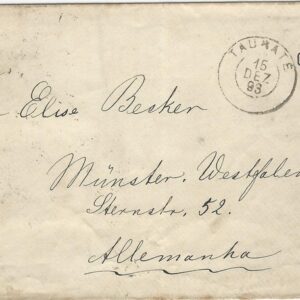 TAUBATÉ
15
DEZ
93
Elise Becker
Münster. Westfalen
Sternstr. 52.
Allemanha